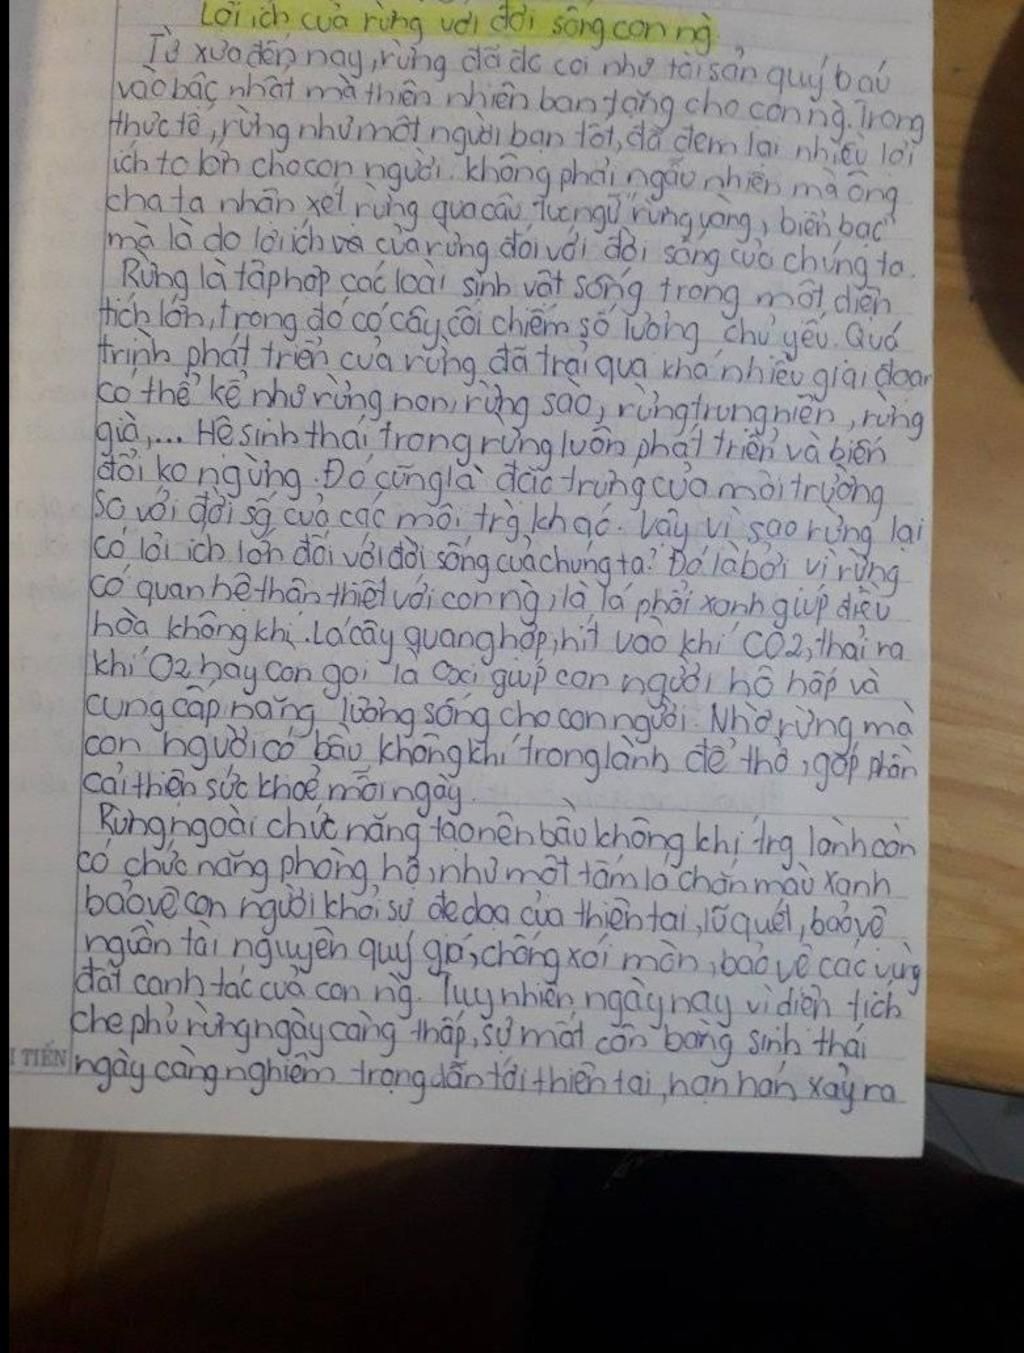 Lợi ích của rừng với đời sống con ng
Từ xưa đến nay, rừng đã đc coi như tài sản quý báu
vào bậc nhất mà thiên nhiên ban tặng cho con ng. Trong
thực tế, rừng như một người bạn tốt, đã đem lại nhiều lợi
ích to lớn cho con người. không phải ngẫu nhiên mà ông
cha ta nhận xét rừng qua câu tục ngữ "rừng vàng, biển bạc"
mà là do lợi ích của rừng đối với đời sống của chúng ta.
Rừng là tập hợp các loài sinh vật sống trong một diện
tích lớn, trong đó có cây cối chiếm số lượng chủ yếu. Quá
trình phát triển của rừng đã trải qua khá nhiều giai đoạn
có thể kể như rừng non, rừng sào, rừng trung niên, rừng
già,... Hệ sinh thái trong rừng luôn phát triển và biến
đổi ko ngừng. Đó cũng là đặc trưng của môi trường
so với đời sg của các môi trg khác. Vậy vì sao rừng lại
có lợi ích lớn đối với đời sống của chúng ta? Đó là bởi vì rừng
có quan hệ thân thiết với con ng, là lá phổi xanh giúp điều
hòa không khí. Lá cây quang hợp, hít vào khí CO2, thải ra
khí O2 hay còn gọi là Oxi giúp con người hô hấp và
cung cấp năng lượng sống cho con người. Nhờ rừng mà
con người có bầu không khí trong lành để thở, góp phần
cải thiện sức khoẻ mỗi ngày.
Rừng ngoài chức năng tạo nên bầu không khí trg lành còn
có chức năng phòng hộ, như một tấm lá chắn màu xanh
bảo vệ con người khỏi sự đe dọa của thiên tai, lũ quét, bảo vệ
nguồn tài nguyên quý giá, chống xói mòn, bảo vệ các vùng
đất canh tác của con ng. Tuy nhiên, ngày nay vì diện tích
che phủ rừng ngày càng thấp, sự mất cân bằng sinh thái
TIẾN ngày càng nghiêm trọng dẫn tới thiên tai, hạn hán xảy ra